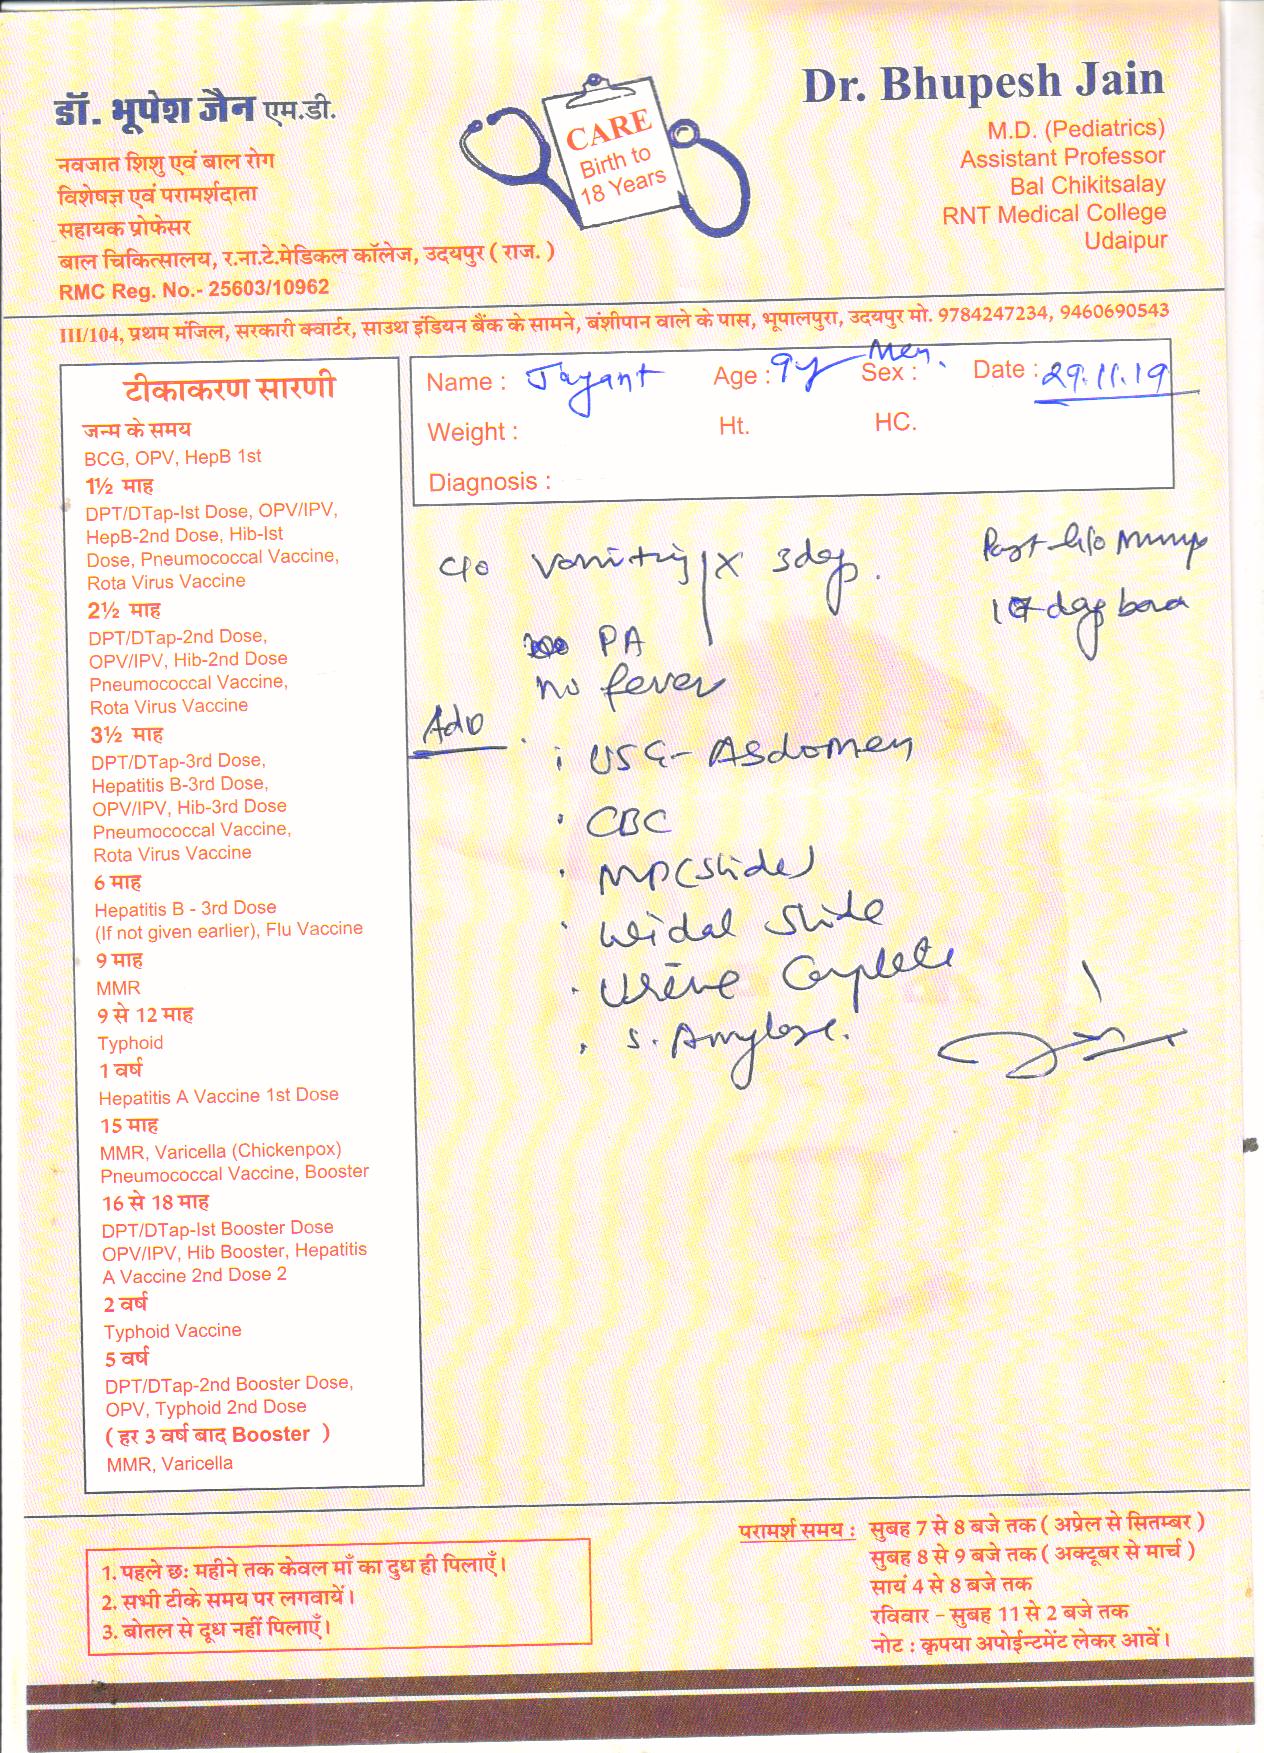 डॉ. भूपेश जैन एम.डी.
नवजात शिशु एवं बाल रोग
विशेषज्ञ एवं परामर्शदाता
सहायक प्रोफेसर
बाल चिकित्सालय, र.ना.टे.मेडिकल कॉलेज, उदयपुर ( राज. )
RMC Reg. No.- 25603/10962
CARE
Birth to
18 Years
Dr. Bhupesh Jain
M.D. (Pediatrics)
Assistant Professor
Bal Chikitsalay
RNT Medical College
Udaipur
III/104, प्रथम मंजिल, सरकारी क्वार्टर, साउथ इंडियन बैंक के सामने, बंशीपान वाले के पास, भूपालपुरा, उदयपुर मो. 9784247234, 9460690543
टीकाकरण सारणी
जन्म के समय
BCG, OPV, HepB 1st
1½ माह
DPT/DTap-Ist Dose, OPV/IPV,
HepB-2nd Dose, Hib-Ist
Dose, Pneumococcal Vaccine,
Rota Virus Vaccine
2½ माह
DPT/DTap-2nd Dose,
OPV/IPV, Hib-2nd Dose
Pneumococcal Vaccine,
Rota Virus Vaccine
3½ माह
DPT/DTap-3rd Dose,
Hepatitis B-3rd Dose,
OPV/IPV, Hib-3rd Dose
Pneumococcal Vaccine,
Rota Virus Vaccine
6 माह
Hepatitis B - 3rd Dose
(If not given earlier), Flu Vaccine
9 माह
MMR
9 से 12 माह
Typhoid
1 वर्ष
Hepatitis A Vaccine 1st Dose
15 माह
MMR, Varicella (Chickenpox)
Pneumococcal Vaccine, Booster
16 से 18 माह
DPT/DTap-Ist Booster Dose
OPV/IPV, Hib Booster, Hepatitis
A Vaccine 2nd Dose 2
2 वर्ष
Typhoid Vaccine
5 वर्ष
DPT/DTap-2nd Booster Dose,
OPV, Typhoid 2nd Dose
( हर 3 वर्ष बाद Booster )
MMR, Varicella
Name : Jayant Age : 9y Sex : Date : 29.11.19
Weight : Ht. HC.
Diagnosis :
c/o Vomiting X 3day.
Past h/o Mumps
day
PA
no fever
Adv
USG- Abdomen
CBC
MP(slide)
Widal slide
Urine Complete
S. Amylase.
1. पहले छः महीने तक केवल माँ का दुध ही पिलाएँ।
2. सभी टीके समय पर लगवायें।
3. बोतल से दूध नहीं पिलाएँ।
परामर्श समय : सुबह 7 से 8 बजे तक ( अप्रेल से सितम्बर )
सुबह 8 से 9 बजे तक ( अक्टूबर से मार्च )
सायं 4 से 8 बजे तक
रविवार - सुबह 11 से 2 बजे तक
नोट : कृपया अपोईन्टमेंट लेकर आवें।